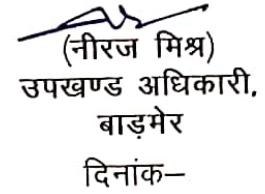 (नीरज मिश्र)
उपखण्ड अधिकारी,
बाड़मेर
दिनांक–